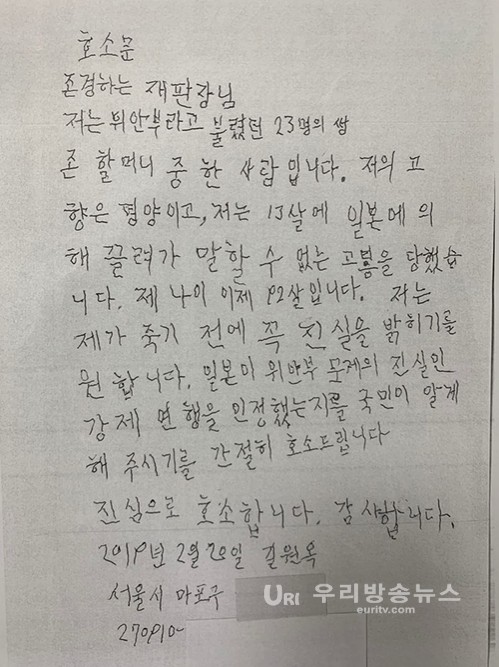 호소문
존경하는 재판장님
저는 위안부라고 불렸던 23명의 생
존 할머니 중 한 사람입니다. 저의 고
향은 평양이고, 저는 13살에 일본에 의
해 끌려가 말할 수 없는 고통을 당했습
니다. 제 나이 이제 92살입니다. 저는
제가 죽기 전에 꼭 진실을 밝히기를
원합니다. 일본이 위안부 문제의 진실인
강제 연행을 인정했는지를 국민이 알게
해 주시기를 간절히 호소드립니다
진심으로 호소합니다. 감사합니다.
2019년 2월 20일 길원옥
서울시 마포구
URI 우리방송뉴스
euritv.com